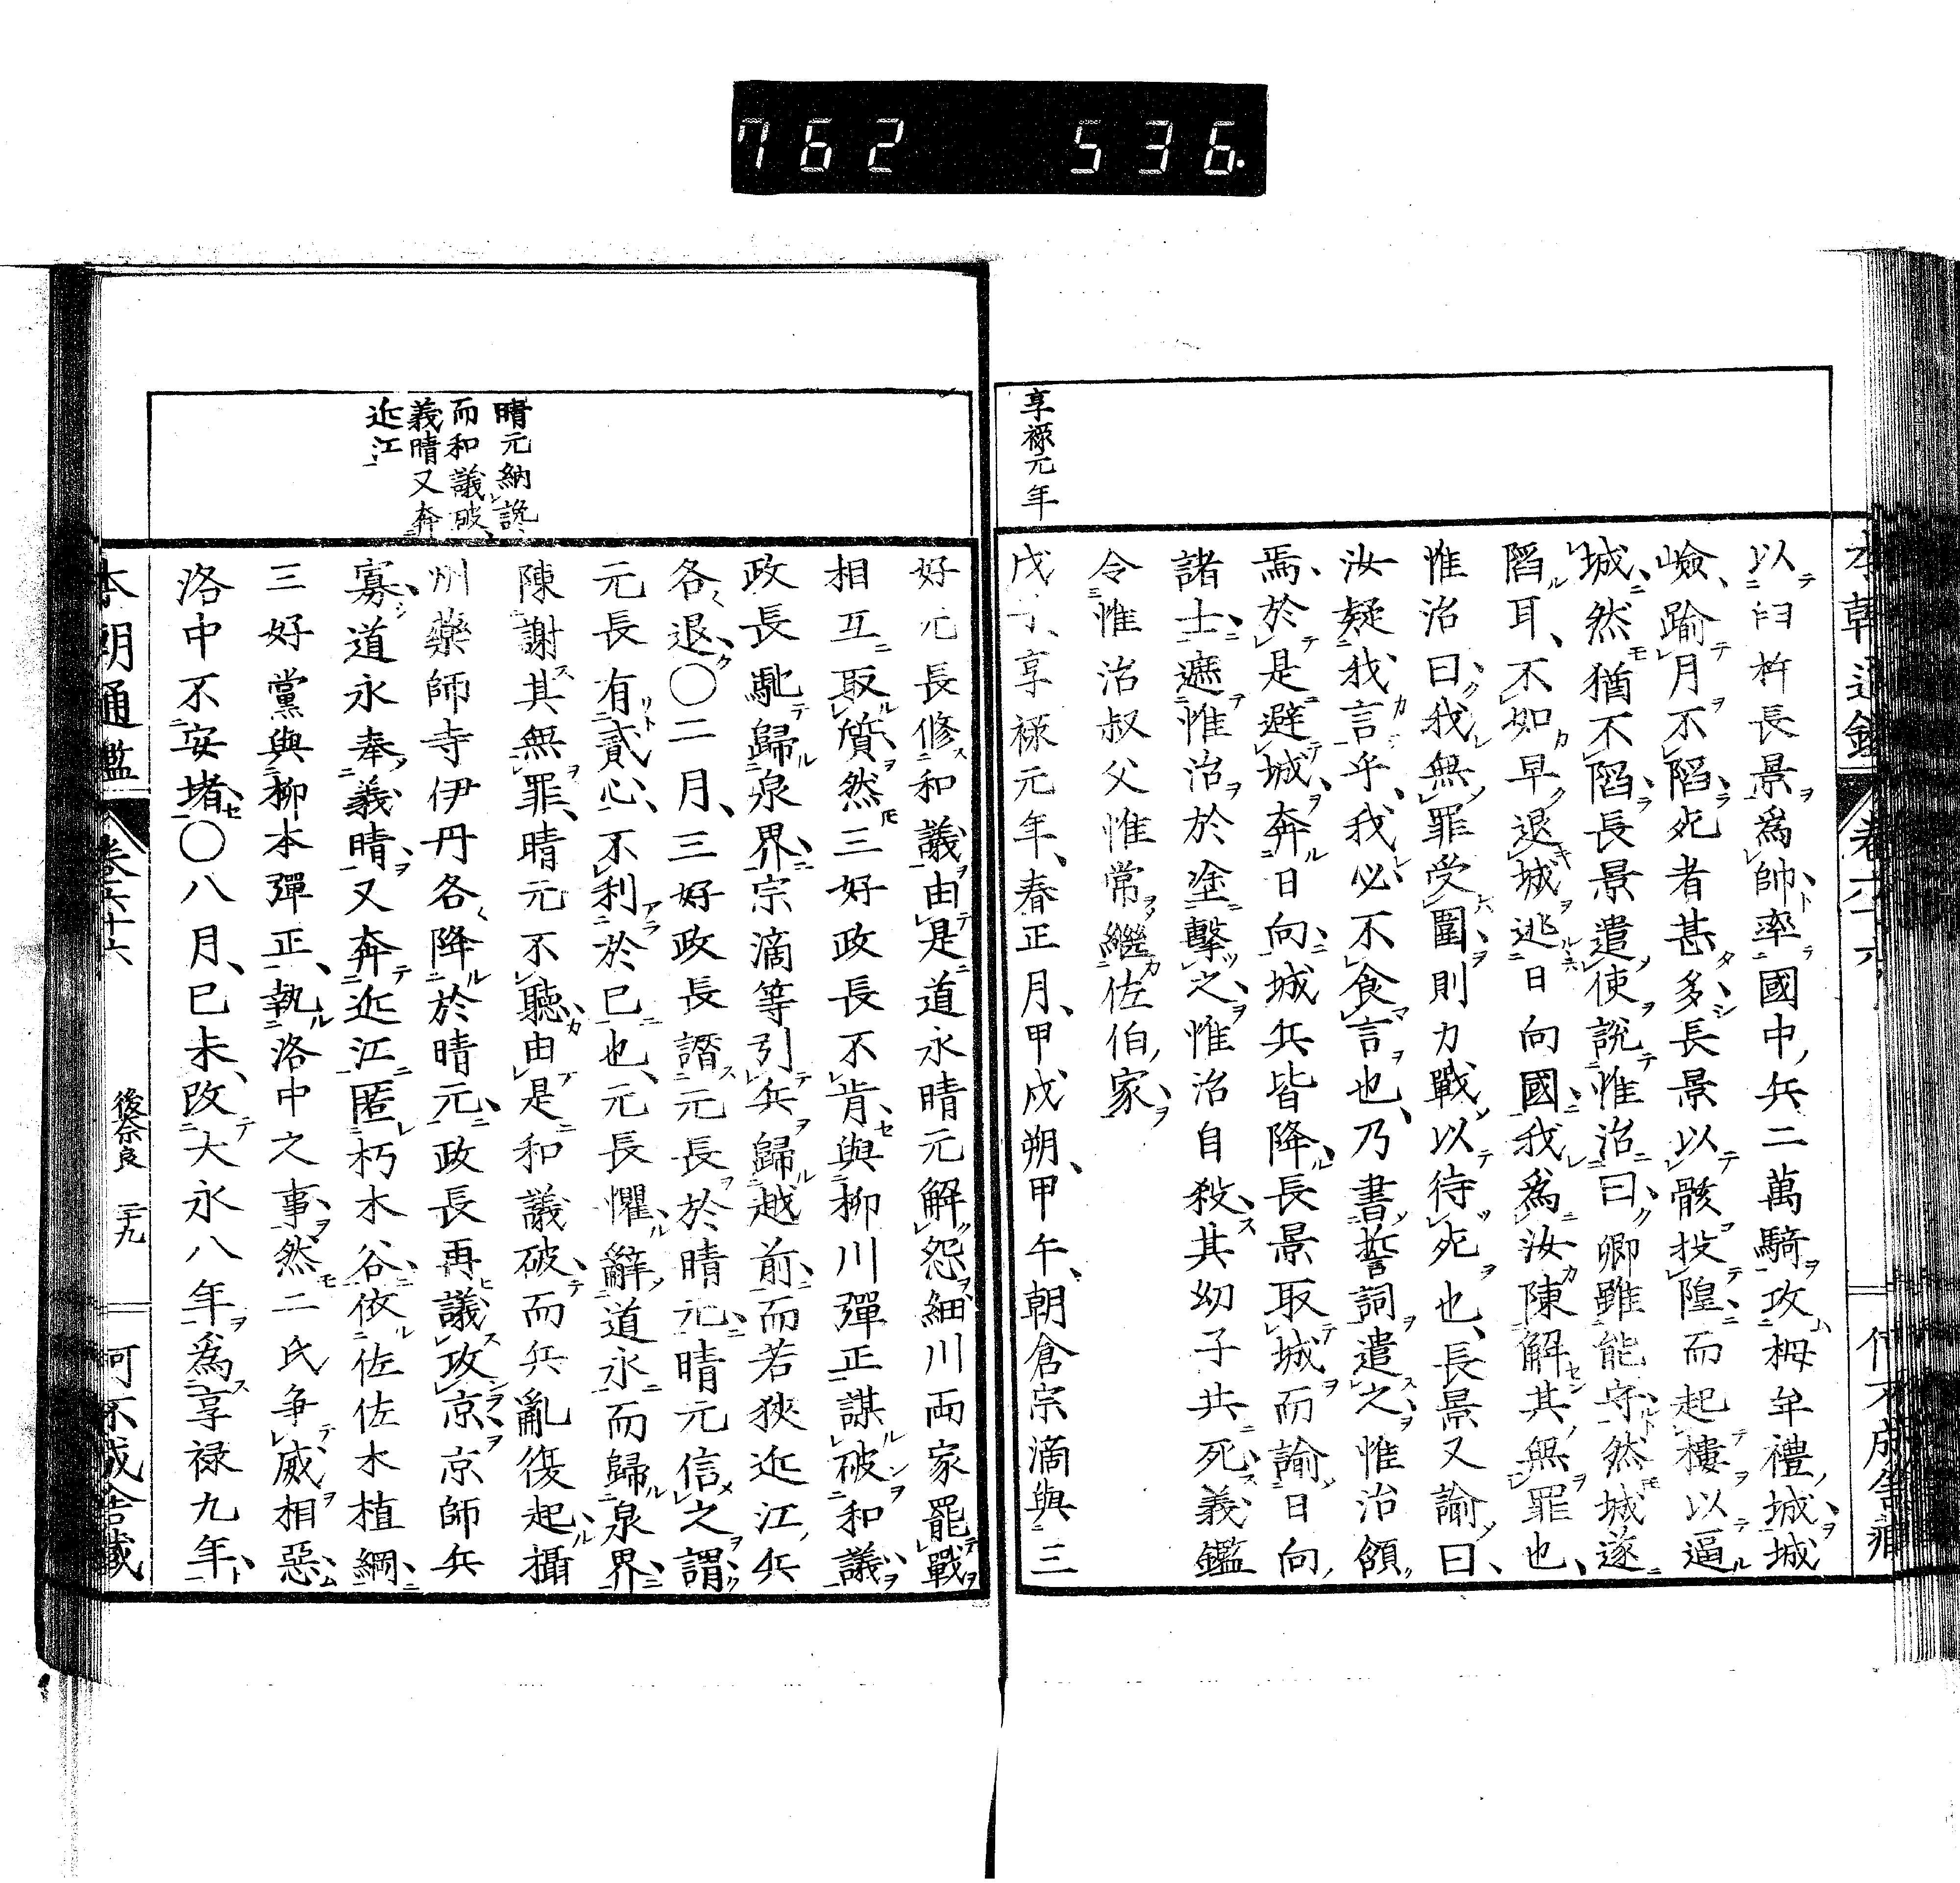 762 536
享祿元年
以臼杵長景爲帥率國中兵二萬騎攻栂牟禮城城
嶮踰月不陷死者甚多長景以骸投隍而起樓以逼
城然猶不陷長景遣使說惟治曰卿雖能守然城遂
陷耳不如早退城逃日向國我爲汝陳解其無罪也
惟治曰我無罪受圍則力戰以待死也長景又諭曰
汝疑我言乎我必不食言也乃書誓詞遣之惟治領
焉於是避城奔日向城兵皆降長景取城而諭日向
諸士遮惟治於塗擊之惟治自殺其幼子共死義鑑
令惟治叔父惟常繼佐伯家
戊子享祿元年春正月甲戌朔甲午朝倉宗滴與三
晴元納讒
而和議破
義晴又奔
近江
好元長修和議由是道永晴元解怨細川両家罷戰
相互取質然三好政長不肯與柳川彈正謀破和議
政長馳歸泉界宗滴等引兵歸越前而若狹近江兵
各退〇二月三好政長譖元長於晴元晴元信之謂
元長有貳心不利於已也元長懼辭道永而歸泉界
陳謝其無罪晴元不聽由是和議破而兵亂復起攝
州藥師寺伊丹各降於晴元政長再議攻京京師兵
寡道永奉義晴又奔近江匿朽木谷依佐佐木植綱
三好黨與柳本彈正執洛中之事然二氏争威相惡
洛中不安堵〇八月巳未改大永八年爲享祿九年
本朝通鑑 卷六十六 後奈良 三十九